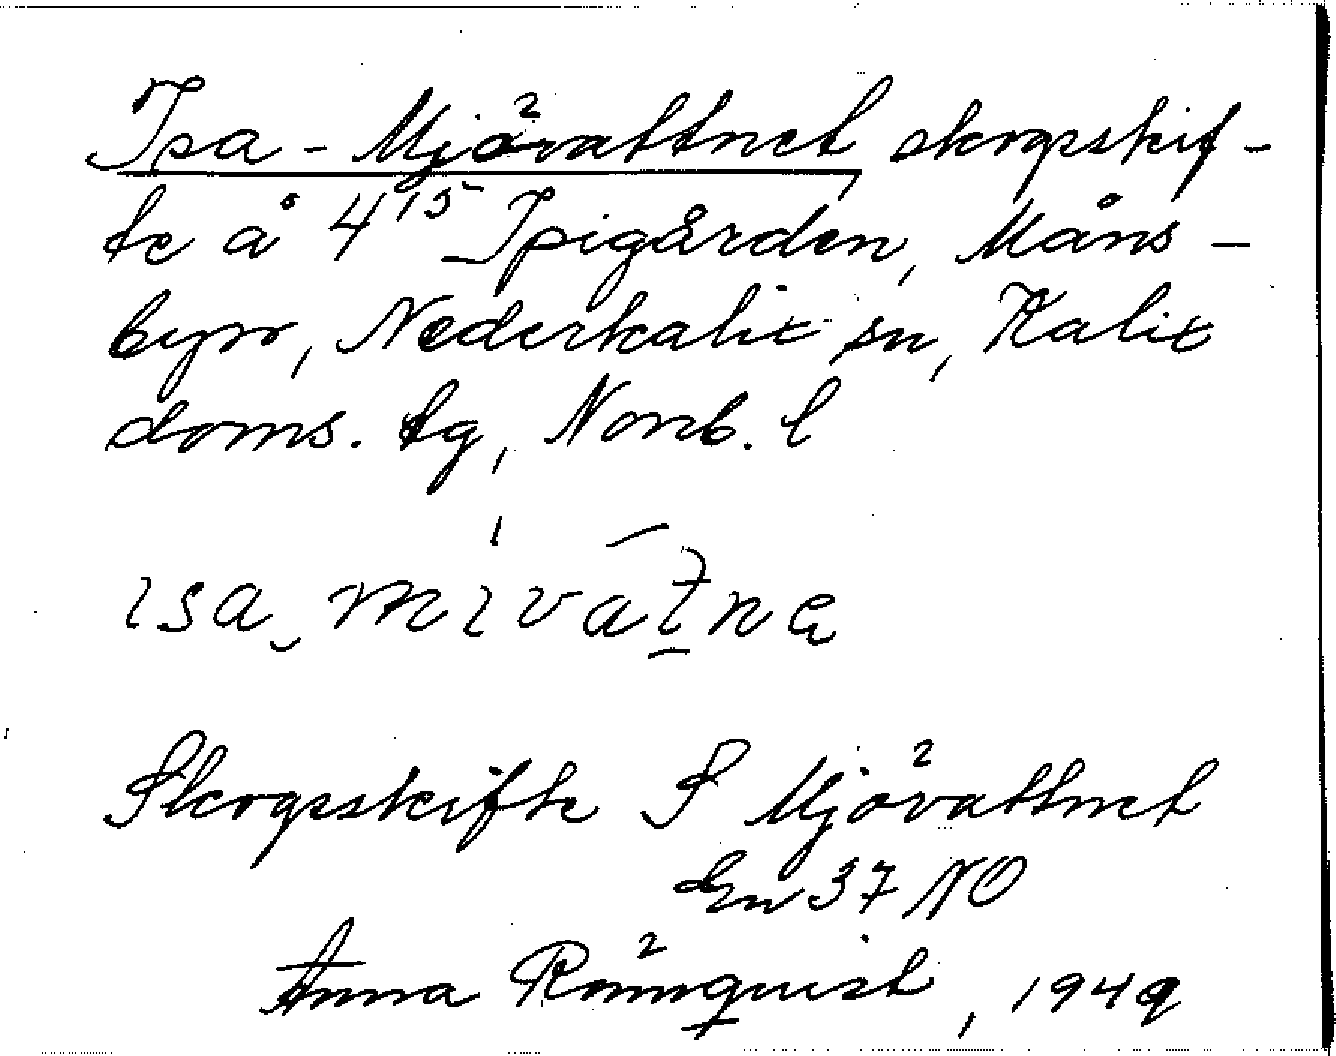 Isa-Mjövattnet skogsskif-
te å 4¹⁵ Isigården, Måns-
byn, Nederkalix sn, Kalix
doms. tg, Norrb. l
Skogsskifte S Mjövattnet
En 37 NO
Anna Rönnquist, 1949